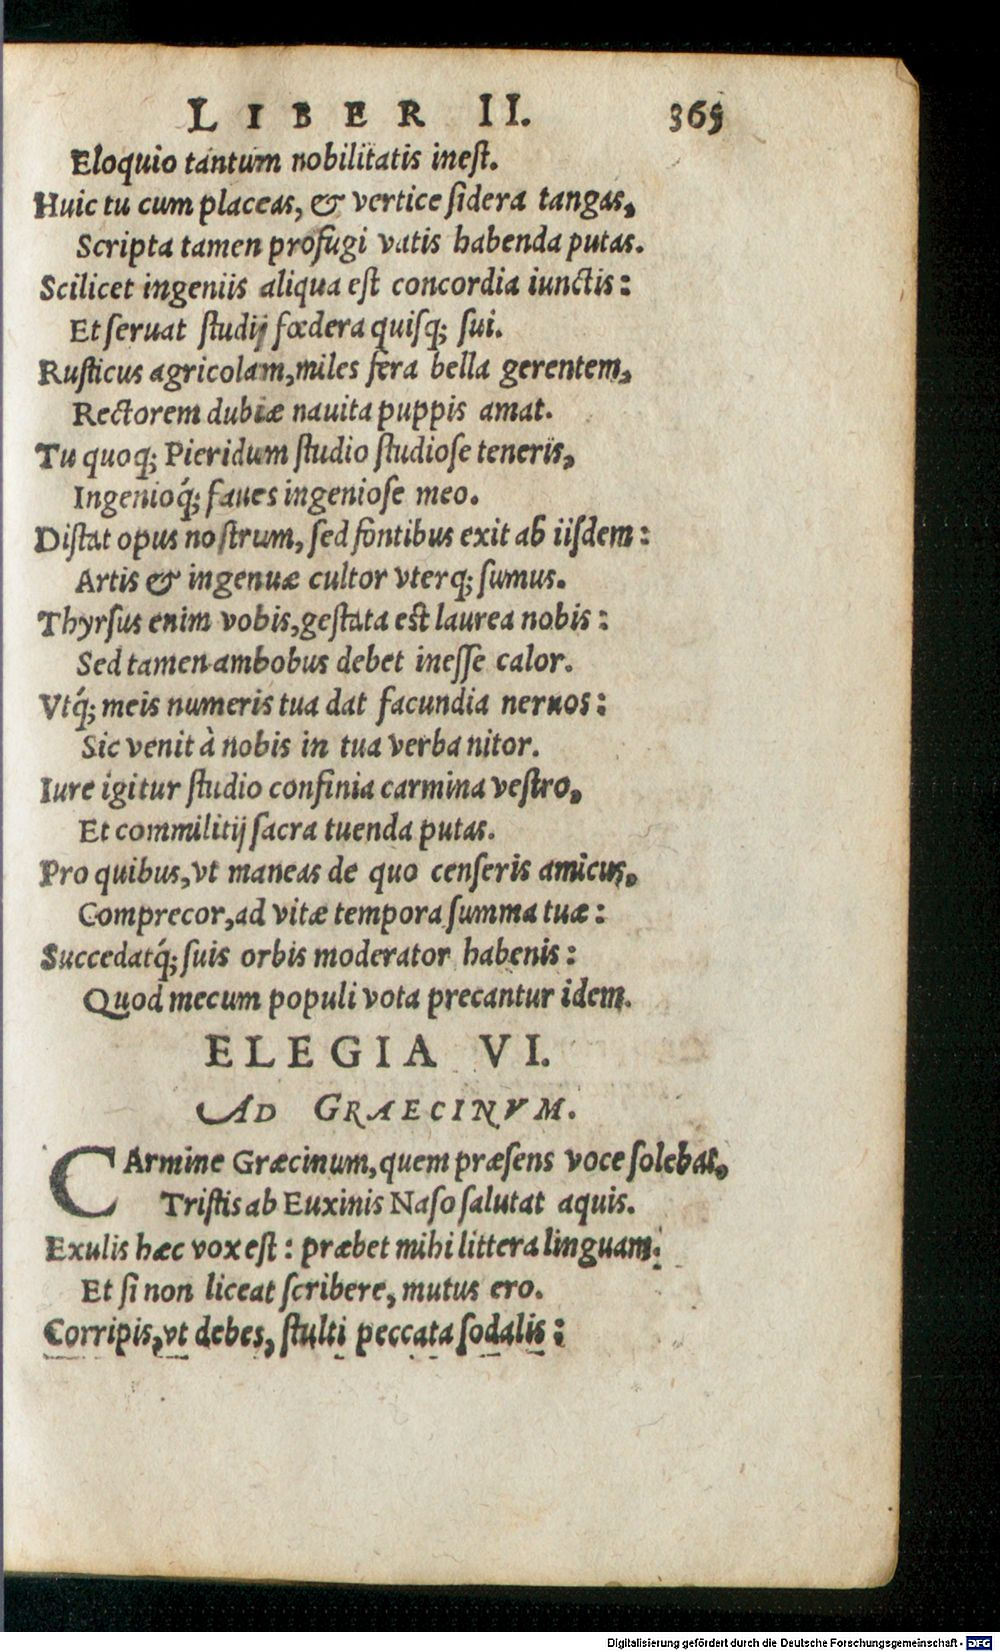 LIBER II. 365
Eloquio tantum nobilitatis ineſt.
Huic tu cum placeas, & vertice ſidera tangas,
Scripta tamen profugi vatis habenda putas.
Scilicet ingeniis aliqua eſt concordia iunctis:
Et ſeruat ſtudij fœdera quiſq; ſui.
Ruſticus agricolam, miles fera bella gerentem,
Rectorem dubiæ nauita puppis amat.
Tu quoq; Pieridum ſtudio ſtudioſe teneris,
Ingenioq́; faues ingenioſe meo.
Diſtat opus noſtrum, ſed fontibus exit ab iiſdem:
Artis & ingenuæ cultor vterq; ſumus.
Thyrſus enim vobis, geſtata eſt laurea nobis:
Sed tamen ambobus debet ineſſe calor.
Vtq́; meis numeris tua dat facundia neruos:
Sic venit à nobis in tua verba nitor.
Iure igitur ſtudio confinia carmina veſtro,
Et commilitij ſacra tuenda putas.
Pro quibus, vt maneas de quo cenſeris amicus,
Comprecor, ad vitæ tempora ſumma tuæ:
Succedatq́; ſuis orbis moderator habenis:
Quod mecum populi vota precantur idem.
ELEGIA VI.
AD GRAECINVM.
CArmine Græcinum, quem præſens voce ſolebat,
Triſtis ab Euxinis Naſo ſalutat aquis.
Exulis hæc vox eſt: præbet mihi littera linguam:
Et ſi non liceat ſcribere, mutus ero.
Corripis, vt debes, ſtulti peccata ſodalis:
Digitalisierung gefördert durch die Deutsche Forschungsgemeinschaft - DFG